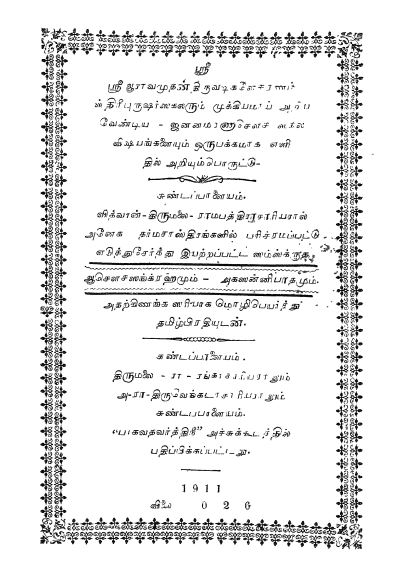 ஸ்ரீ
ஸ்ரீ ஆராவமுதன் திருவடிகளே சரணம்
ஸ்திரிபுருஷர்களெலாரும் முக்கியமாய்
வேண்டிய - ஜனனமரணாசௌச சகல
விஷயங்களையும் ஒருபக்கமாக எளி
தில் அறியும்பொருட்டு-
கண்டப்பாளையம்.
வித்வான்-திருமலை- ராமபத்திராசாரியரால்
அனேக தர்மசாஸ்திரங்களில் பரிச்ரமப்பட்டு
எடுத்துசேர்த்து இயற்றப்பட்ட ஸம்ஸ்க்ருத
ஆசௌசஸங்க்ரஹமும் - அகஸன்னிபாதமும்.
அதற்கிணங்க ஸரியாக மொழிபெயர்த்து
தமிழ்பிரதியுடன்.
கண்டப்பாளையம்.
திருமலை - ரா - ரங்காசாரியராலும்
அ-ரா-திருவேங்கடாசாரியராலும்
கண்டப்பாளையம்.
"பாகவதவர்த்தினி" அச்சுக்கூடத்தில்
பதிப்பிக்கப்பட்டது.
1911
விலை 0 2 6